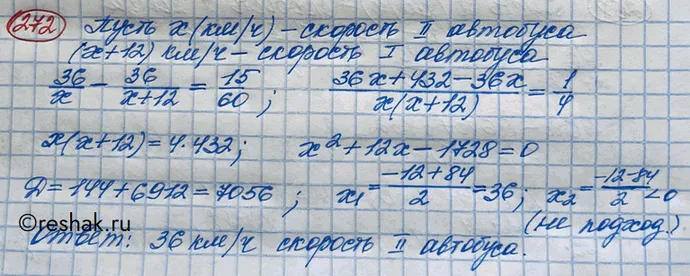 272 Пусть x (км/ч) – скорость II автобуса
(x+12) км/ч – скорость I автобуса
36/x − 36/(x+12) = 15/60 ; (36x+432−36x)/(x(x+12)) = 1/4
x(x+12) = 4·432; x² + 12x − 1728 = 0
D = 144 + 6912 = 7056 ; x₁ = (−12+84)/2 = 36; x₂ = (−12−84)/2 < 0
(не подход.)
Ответ: 36 км/ч скорость II автобуса.
©reshak.ru